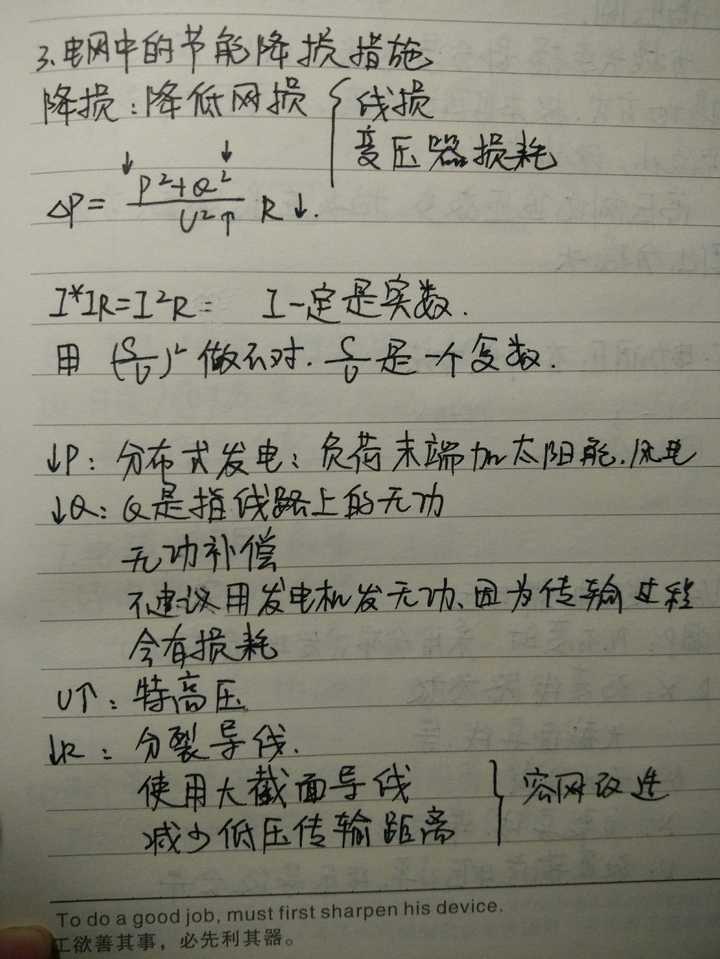 3.电网中的节能降损措施
降损：降低网损 { 线损
变压器损耗
↓ ↓
△P= P²+Q² / U²↑ R↓.
I*IR=I²R= I一定是实数.
用 (S/U)² 做不对. S/U 是一个复数.
↓P：分布式发电：负荷末端加太阳能.风电
↓Q：Q是指线路上的无功
无功补偿
不建议用发电机发无功、因为传输过程
会有损耗
U↑：特高压
↓R：分裂导线.
使用大截面导线
减少低压传输距离 } 农网改造
To do a good job, must first sharpen his device.
工欲善其事，必先利其器。